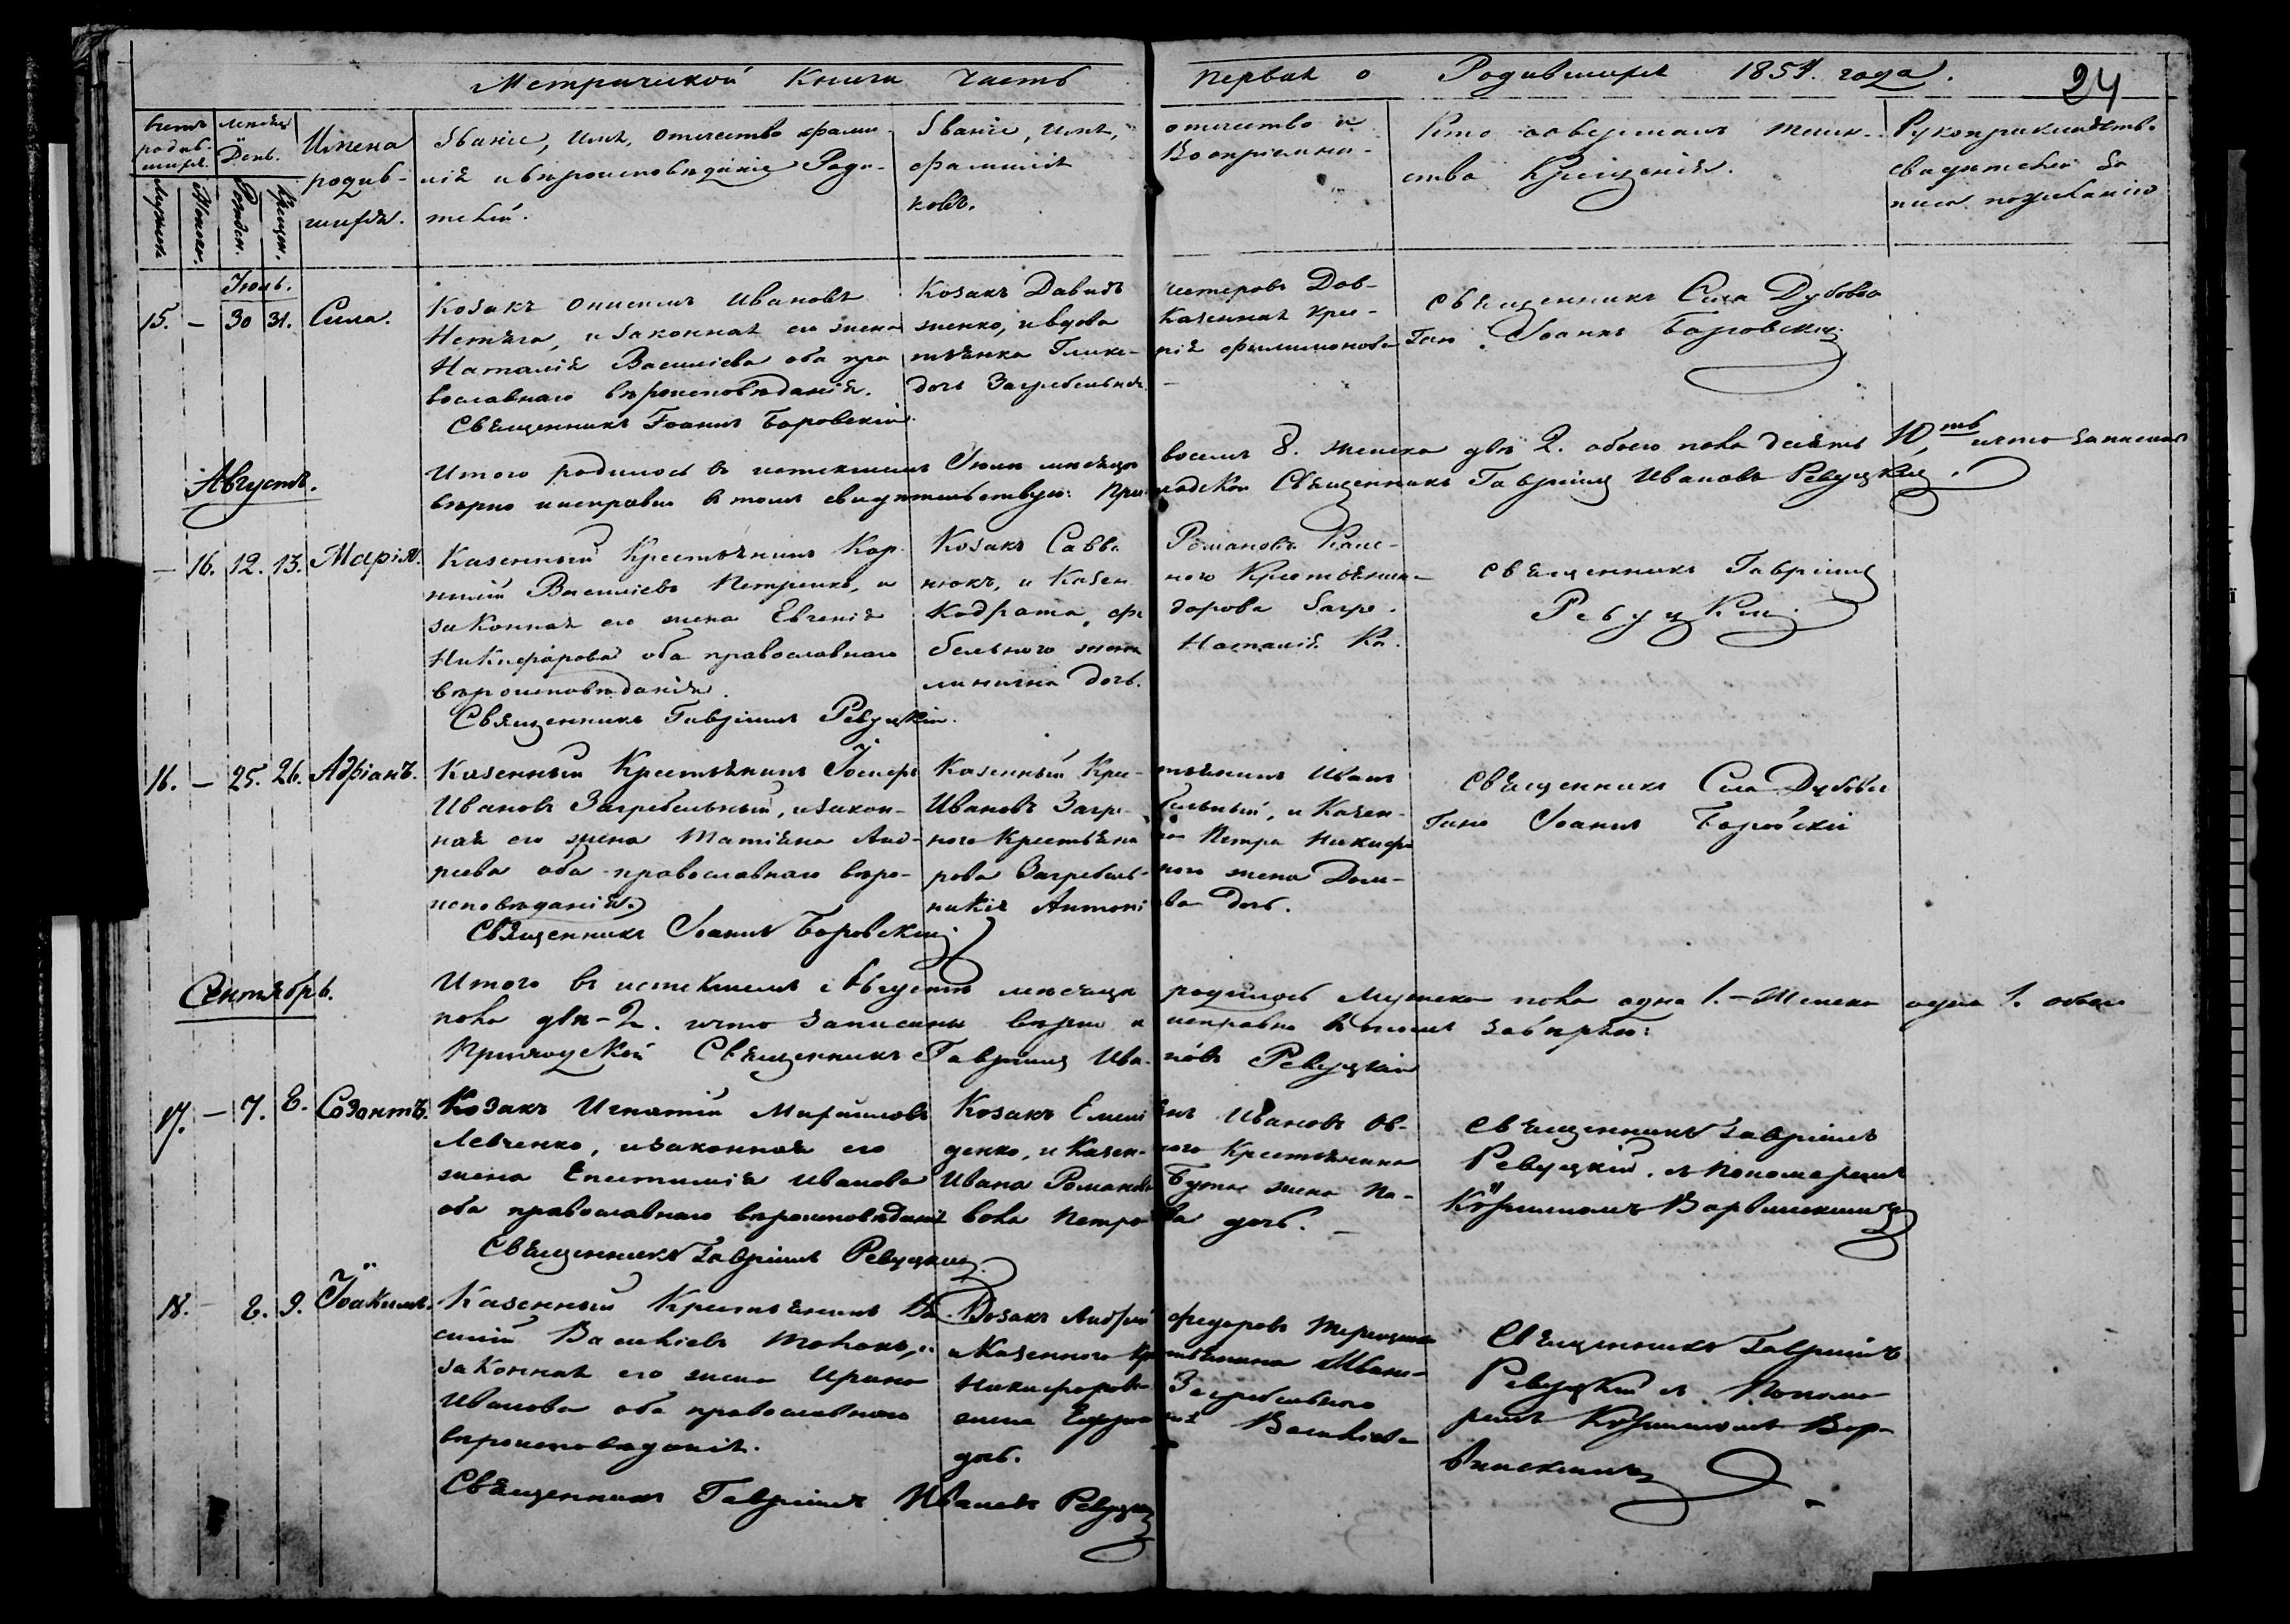 Метрической Книги Часть первая о Родившихся 1854. года.
24
Счетъ родив- шихся.
Месяцъ День.
Имена родив- шихся.
Званіе, имя, отчество фами- лія и вѣроисповѣданіе Роди- телей.
Званіе, имя, отчество и
фамилія Воспріемни-
ковъ.
Кто совершалъ таин-
ства Крещенія.
Рукоприкладство
свидѣтелей за
писи по желанію
Мужеска
Женска.
Рожден.
Крещен.
Іюль.
15. — 30 31. Сила.
Козакъ Онисимъ Ивановъ
Нетяга, и законная его жена
Наталія Василіева оба пра
вославнаго вѣроисповѣданія.
Священникъ Іоаннъ Боровскій.
Козакъ Давидъ Нестеровъ Дов-
женко, и вдова Казенная крес-
тьянка Глике- рія Филимонова
дочь Загребельная.
Священникъ Села Дубовои
Іоаннъ Боровскій
Итого родилось въ истекшемъ Іюлѣ мѣсяцѣ восемь 8. женска двѣ 2. обоего пола десять 10, что записано
вѣрно и исправно въ томъ свидѣтельствую: Приходской Священникъ Гавріилъ Ивановъ Ревуцкій.
Августъ.
— 16. 12. 13. Марія.
Казенный Крестьянинъ Кор-
нилій Василіевъ Петренко, и
законная его жена Евгенія
Никифорова оба православнаго
вѣроисповѣданія.
Священникъ Гавріилъ Ревуцкій.
Козакъ Савва Романовъ
нюкъ, и Казен ного Крестьянина
Кодрата, Фе дорова Загре-
бельного жена Наталія Ка-
линична дочь.
Священникъ Гавріилъ
Ревуцкій
16. — 25. 26. Адріанъ.
Казенный Крестьянинъ Іосифъ
Ивановъ Загребельный, и закон-
ная его жена Татіана Анд-
реева оба православнаго вѣро-
исповѣданія.
Священникъ Іоаннъ Боровскій
Казенный Крес- тьянинъ Иванъ
Ивановъ Загре- бельный, и Казен-
ного Крестьяни на Петра Никифо
рова Загребель- ного жена Дом-
никія Антоні ва дочь.
Священникъ Села Дубовои
Іоаннъ Боровскій
Сентябрь.
Итого въ истекшемъ Августѣ мѣсяцѣ родилось Мужеска пола одна 1. — Женска одна 1. обоего
пола двѣ — 2. что записаны вѣрно и исправно въ томъ завѣряю:
Приходскій Священникъ Гавріилъ Ива- новъ Ревуцкій
17. — 7. 8. Созонтъ.
Козакъ Игнатій Маріиловъ
Левченко, и законная его
жена Епистимія Иванова
оба православнаго вѣроисповѣданія
Священникъ Гавріилъ Ревуцкій.
Козакъ Емелі янъ Ивановъ Ов-
денко, и Казен- ного Крестьянина
Ивана Романова Бута жена Па-
вола Петро ва дочь. —
Священникъ Гавріилъ
Ревуцкій, съ Пономаремъ
Варвинскимъ
18. — 8. 9. Іоакимъ.
Казенный Крестьянинъ Ва
силій Василіевъ
законная его жена Ирина
Иванова оба православного
вѣроисповѣданія.
Священникъ Гавріилъ Ивановъ Ревуцкій
Козакъ Андрей Федоровъ Терещенко
и Казенного Кре стьянина Ивана
Никифорова Загребельного
жена Василіева
дочь.
Священникъ Гавріилъ
Ревуцкій съ Понома-
ремъ Вар-
винскимъ